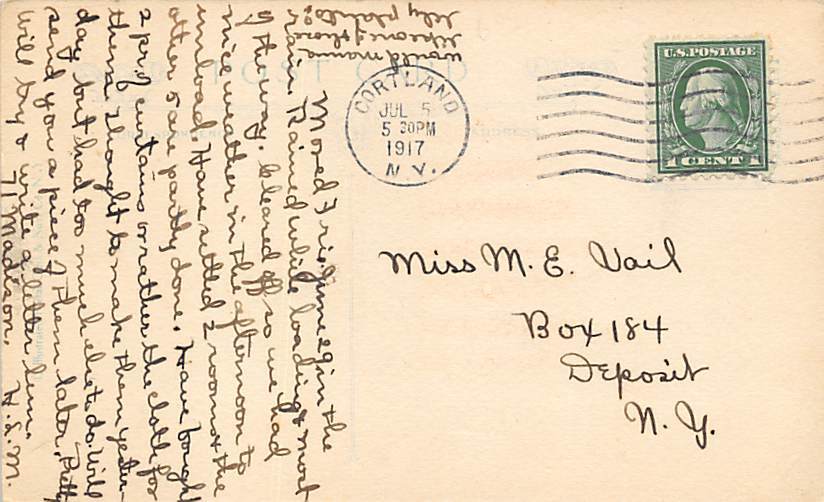 POST CARD
CORTLAND
JUL 5
5 30PM
1917
N.Y.
U.S. POSTAGE
1 CENT 1
Miss M. E. Vail
Box 184
Deposit
N. Y.
Moved Fri. June 29 in the
rain. Rained while loading & most
of the way. Cleared off so we had
nice weather in the afternoon to
unload. Have settled 2 rooms & the
other 5 are partly done. Have bought
2 pr. of curtains or rather the cloth for
them. Thought to make them yester-
day but had too much else to do. Will
send you a piece of them later. Pretty
will try & write a letter
71 Madison. H. L. M.
Would mama
like one of those
lily plants?